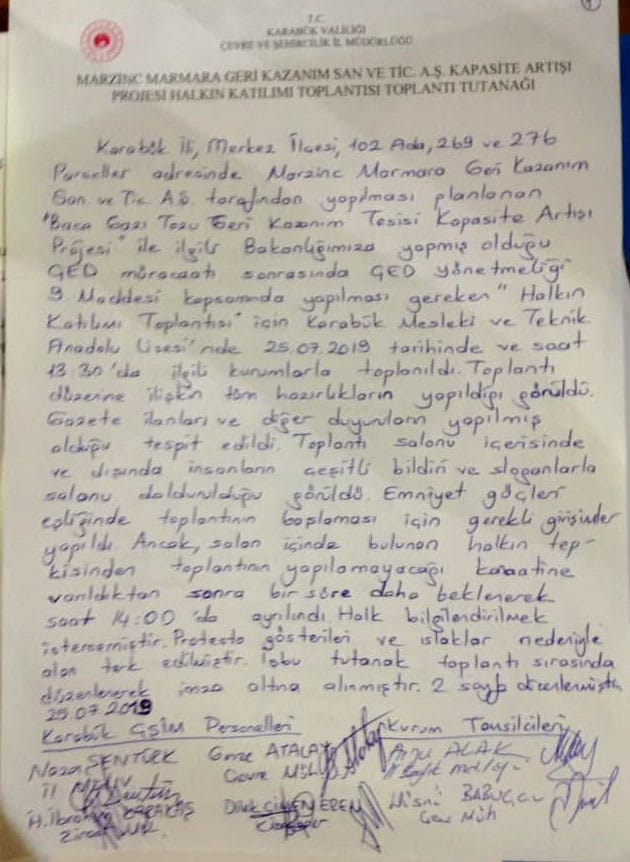 T.C.
KARABÜK VALİLİĞİ
ÇEVRE VE ŞEHİRCİLİK İL MÜDÜRLÜĞÜ
MARZINC MARMARA GERİ KAZANIM SAN VE TİC. A.Ş. KAPASİTE ARTIŞI
PROJESİ HALKIN KATILIMI TOPLANTISI TOPLANTI TUTANAĞI
Karabük İli, Merkez İlçesi, 102 Ada, 269 ve 276
Parseller adresinde Marzinc Marmara Geri Kazanım
San. ve Tic A.Ş. tarafından yapılması planlanan
"Baca Gazı Tozu Geri Kazanım Tesisi Kapasite Artışı
Projesi" ile ilgili Bakanlığımıza yapmış olduğu
ÇED müracaatı sonrasında ÇED yönetmeliği
9 Maddesi kapsamında yapılması gereken "Halkın
Katılımı Toplantısı" için Karabük Mesleki ve Teknik
Anadolu Lisesi'nde 25.07.2019 tarihinde ve saat
13.30'da ilgili kurumlarla toplanıldı. Toplantı
düzenine ilişkin tüm hazırlıkların yapıldığı görüldü.
Gazete ilanları ve diğer duyuruların yapılmış
olduğu tespit edildi. Toplantı salonu içerisinde
ve dışında insanların çeşitli bildiri ve sloganlarla
salonu doldurulduğu görüldü. Emniyet güçleri
eşliğinde toplantının başlaması için gerekli girişimler
yapıldı. Ancak, salon içinde bulunan halkın tep-
kisinden toplantının yapılamayacağı kanaatine
varıldıktan sonra bir süre daha beklenerek
saat 14:00'da ayrılındı. Halk bilgilendirilmek
istememiştir. Protesto gösterileri ve ıslıklar nedeniyle
alan terk edilmiştir. İşbu tutanak toplantı sırasında
düzenlenerek imza altına alınmıştır. 2 sayfa
25.07.2019
Karabük ÇŞİM Personelleri Kurum Temsilcileri
ŞENTÜRK ATALAY Arzu ALAK
İl Çevre Müh.
H. İbrahim Dilek EREN Hüsnü
Çev Müh